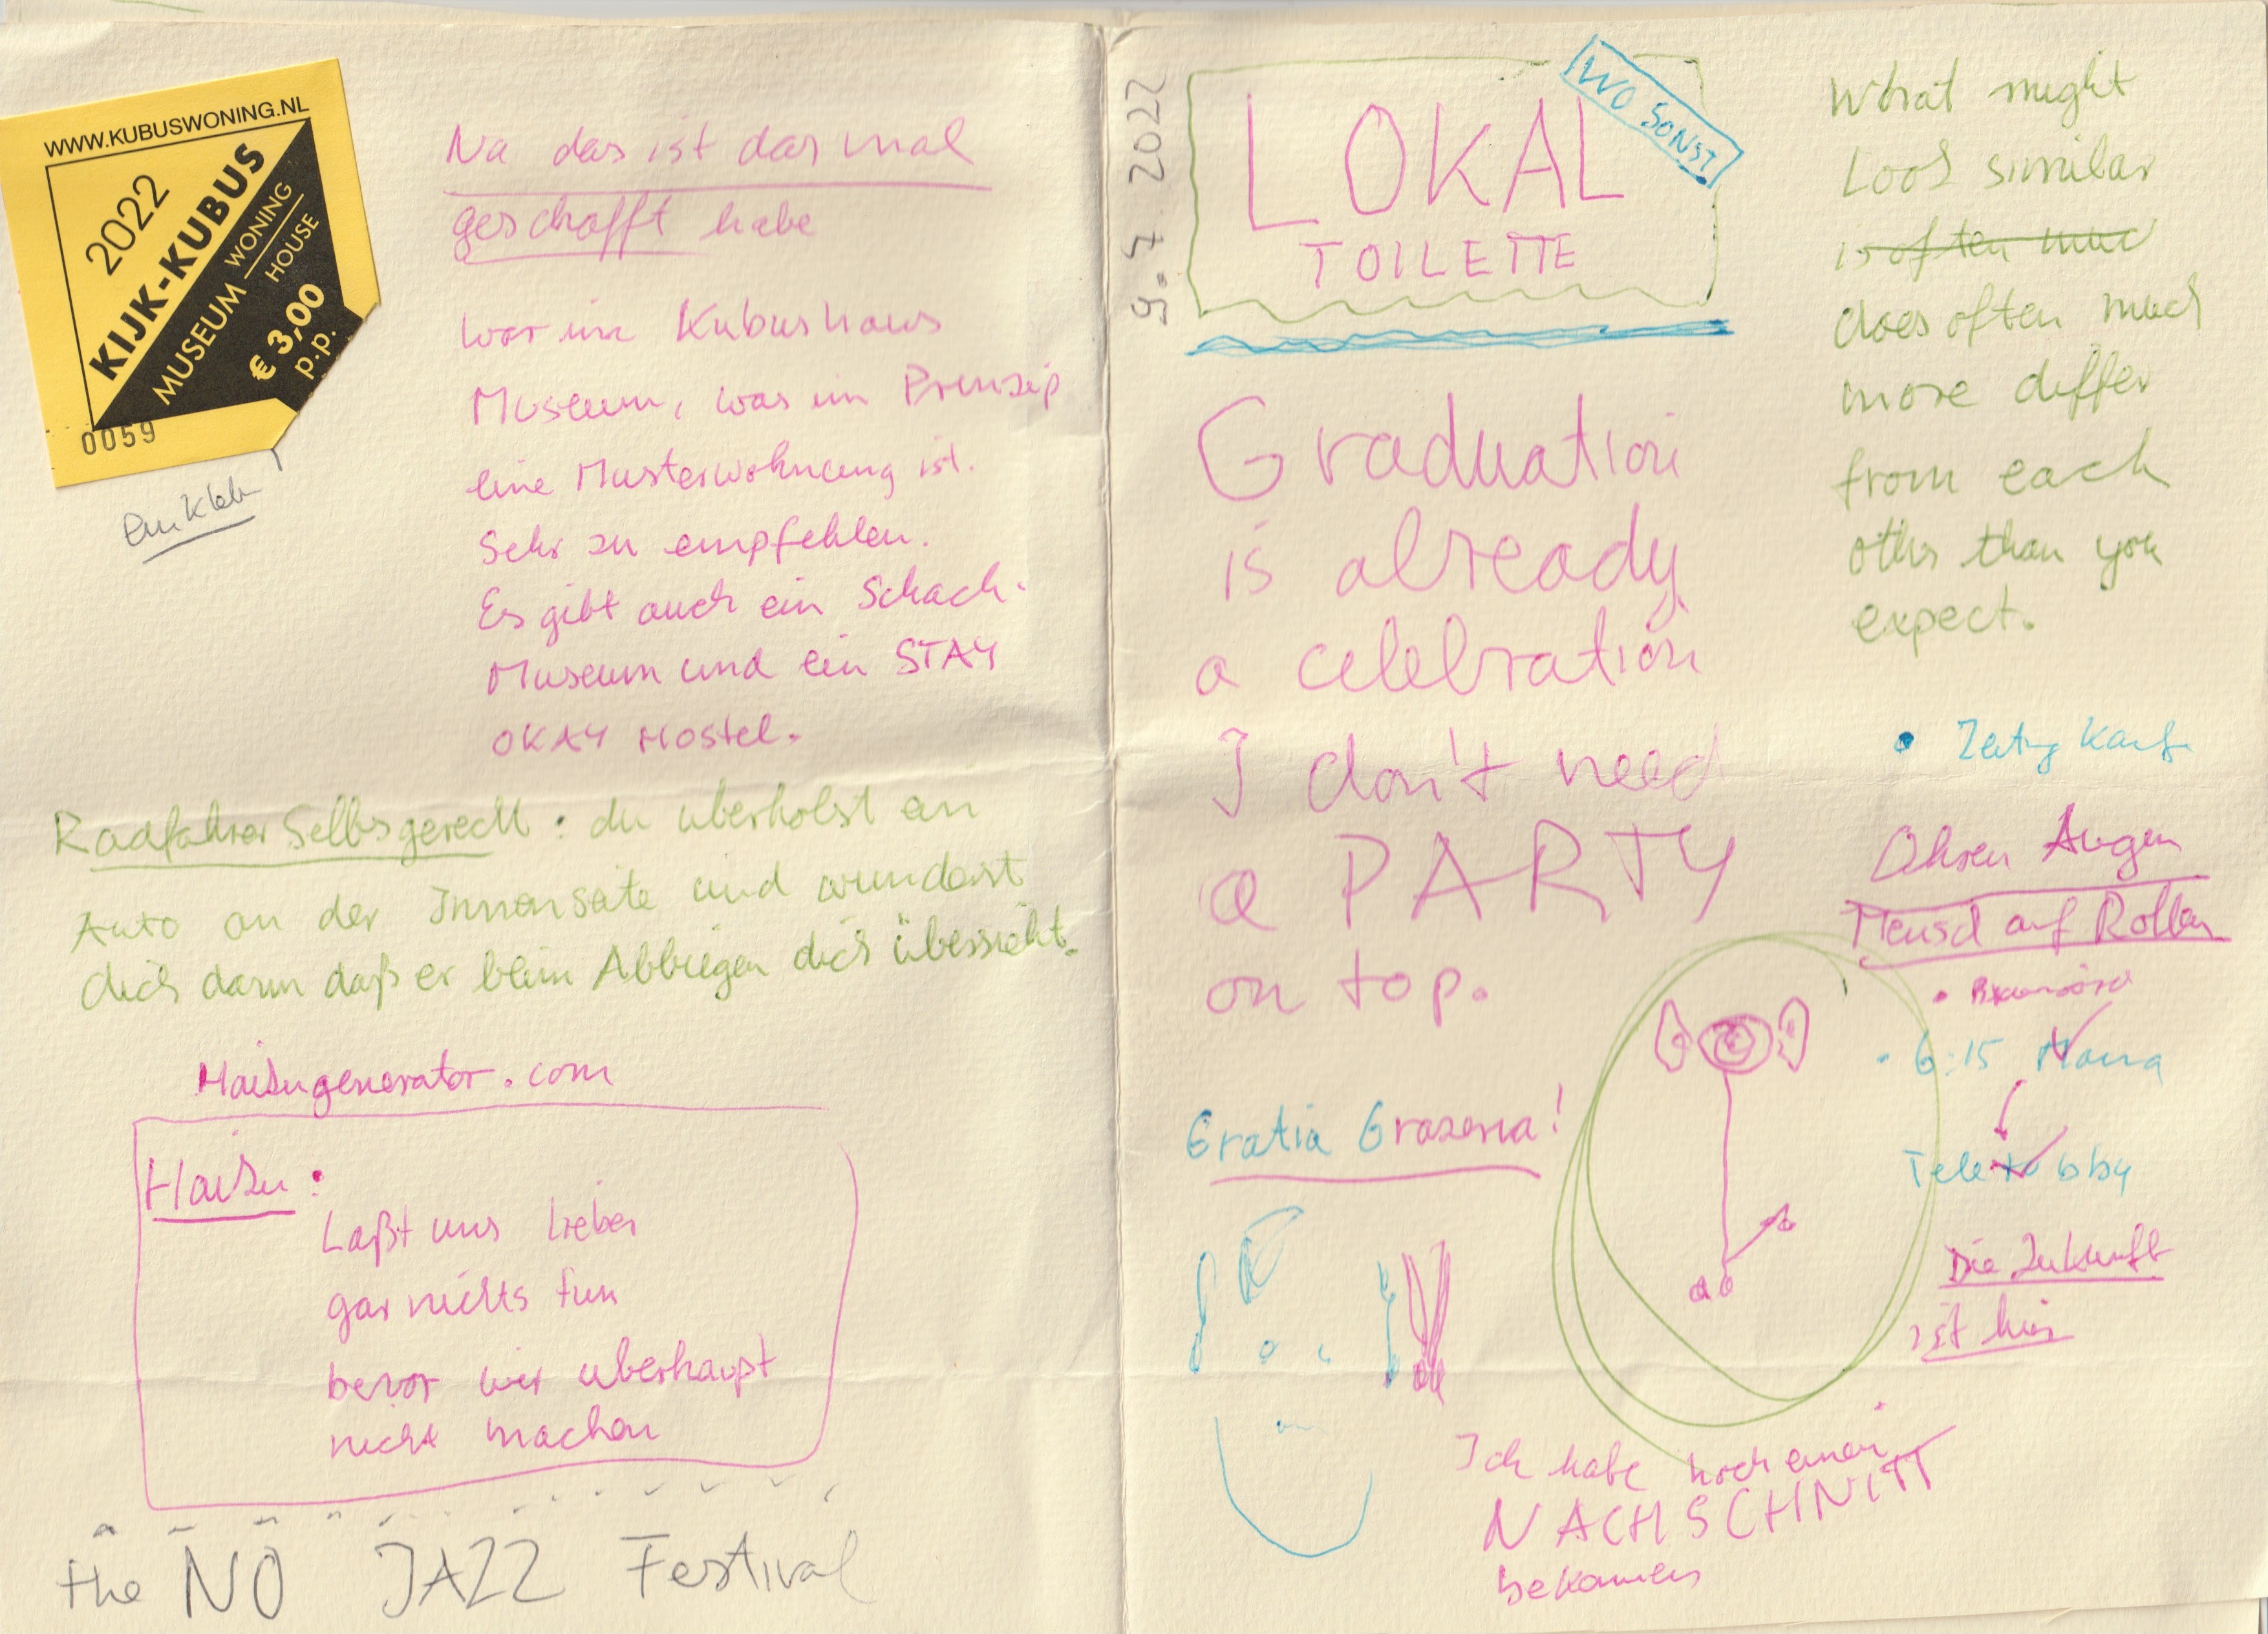 WWW.KUBUSWONING.NL
2022
KIJK-KUBUS
MUSEUM WONING
HOUSE
€ 3,00
p.p.
0059
Na das ist das mal
geschafft habe
War im Kubushaus
Museum, was im Prinzip
eine Musterwohnung ist.
Sehr zu empfehlen.
Es gibt auch ein Schach-
Museum und ein STAY
OKAY Hostel.
Radfahrer Selbsgerecht: du uberholst ein
Auto an der Innenseite und wunderst
dich dann daß er beim Abbiegen dich übersieht.
Haikugenerator.com
Haiku:
Laßt uns lieber
gar nichts tun
bevor wir uberhaupt
nicht machen
the NO JAZZ Festival
9.7.2022
LOKAL
TOILETTE
WO SONST
Graduation
is already
a celebration
I don't need
a PARTY
on top.
Gratia Grazena!
Ich habe noch einen
NACHSCHNITT
bekommen
What might
Look similar
is often muc
does often much
more differ
from each
other than you
expect.
• Zeitung Kaufe
Ohren Augen
Mensch auf Rollen
• 6:15 Mama
Teletubby
Die Zukunft
ist hier